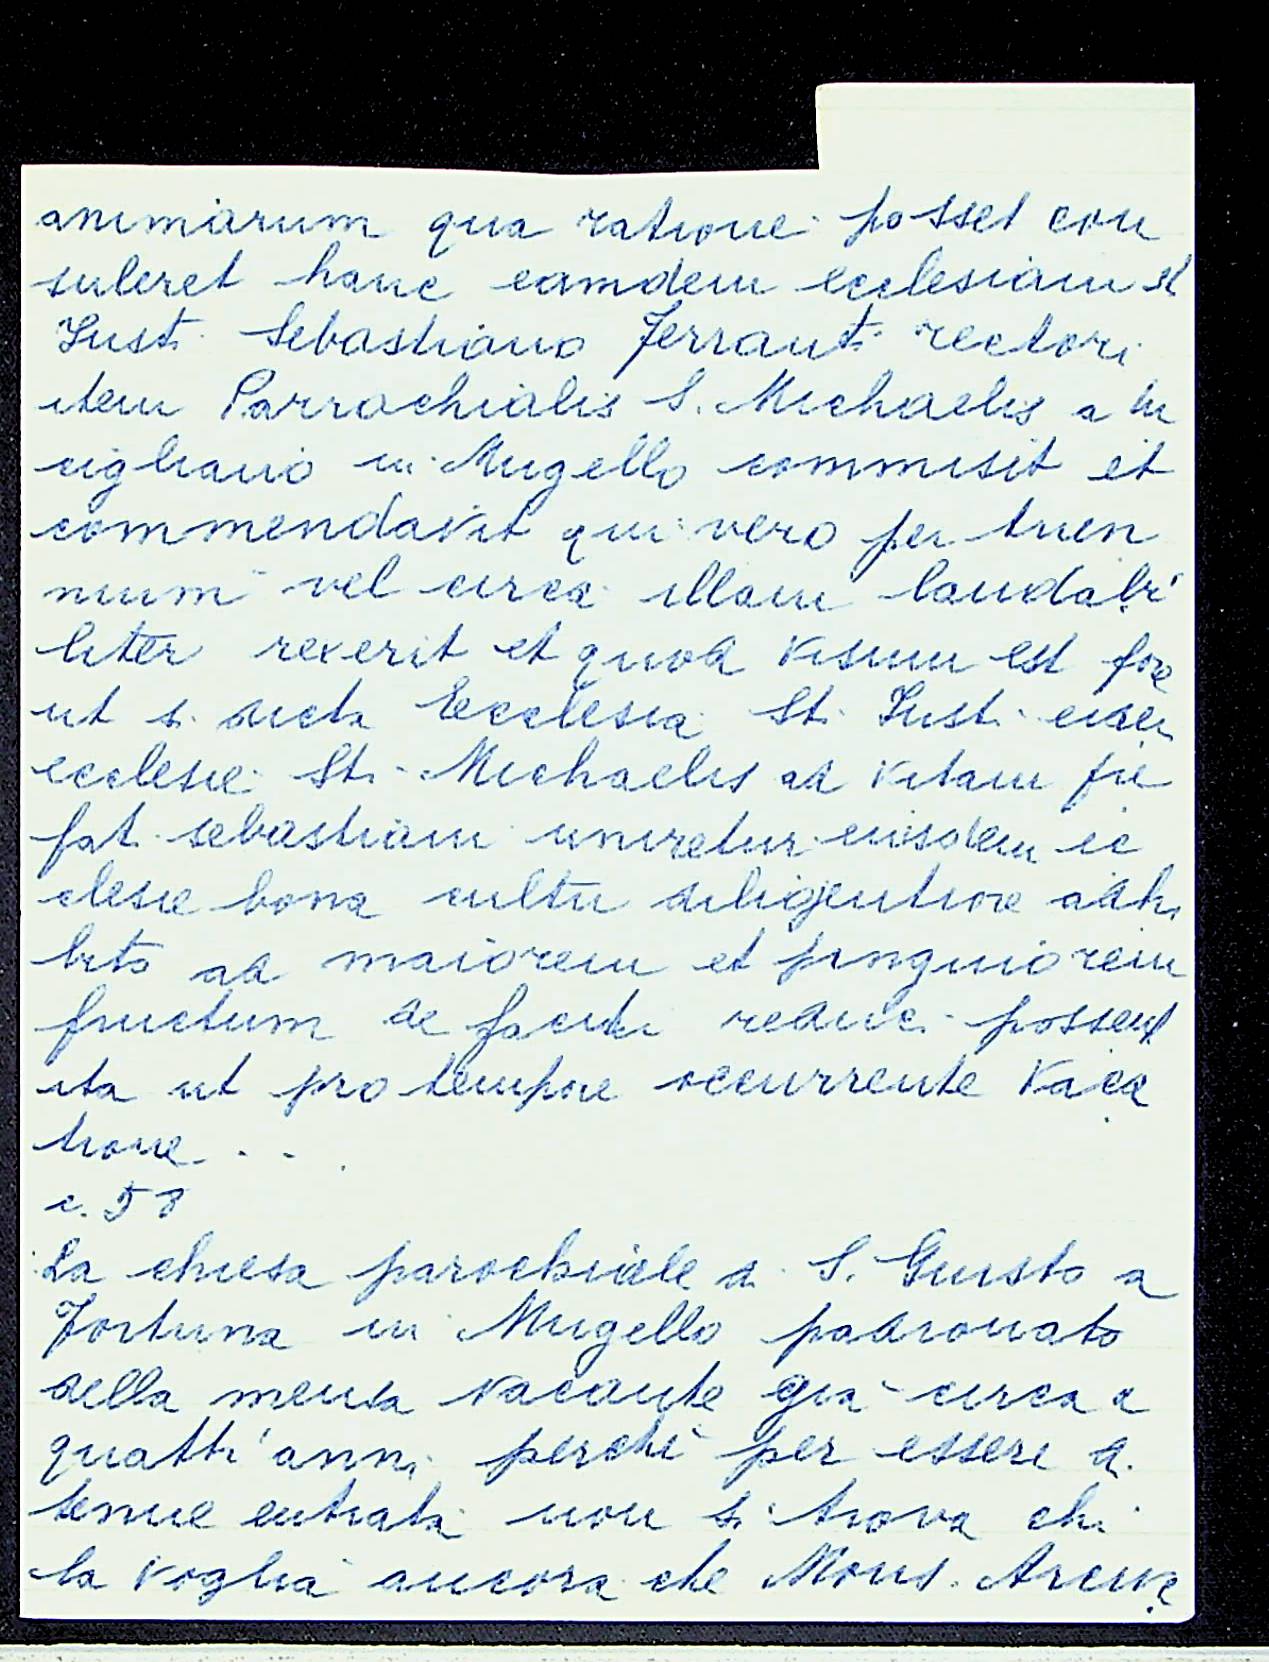 animarum qua ratione posset con
suleret hanc eamdem ecclesiam St
Iusti Sebastiano Ferranti rectori
item Parrochialis S. Michaelis a Lu
cigliano in Mugello commisit et
commendavit qui vero per trien
nium vel circa illam laudabi
liter rexerit et quod visum est fore
ut si dicta Ecclesia St. Iusti eidem
ecclesie Sti Michaelis ad vitam pre
fat. sebastiani uniretur eiusdem ec
clesie bona cultu diligentiore adhi
bito ad maiorem et pinguiorem
fructum de facili reduci possent
ita ut pro tempore occurrente vaca
tione . . .
c. 58
La chiesa parochiale di S. Giusto a
Fortuna in Mugello padronato
della mensa vacante già circa a
quattr'anni perchè per essere di
tenue entrata non si trova chi
la voglia ancora che Mons. Arcive